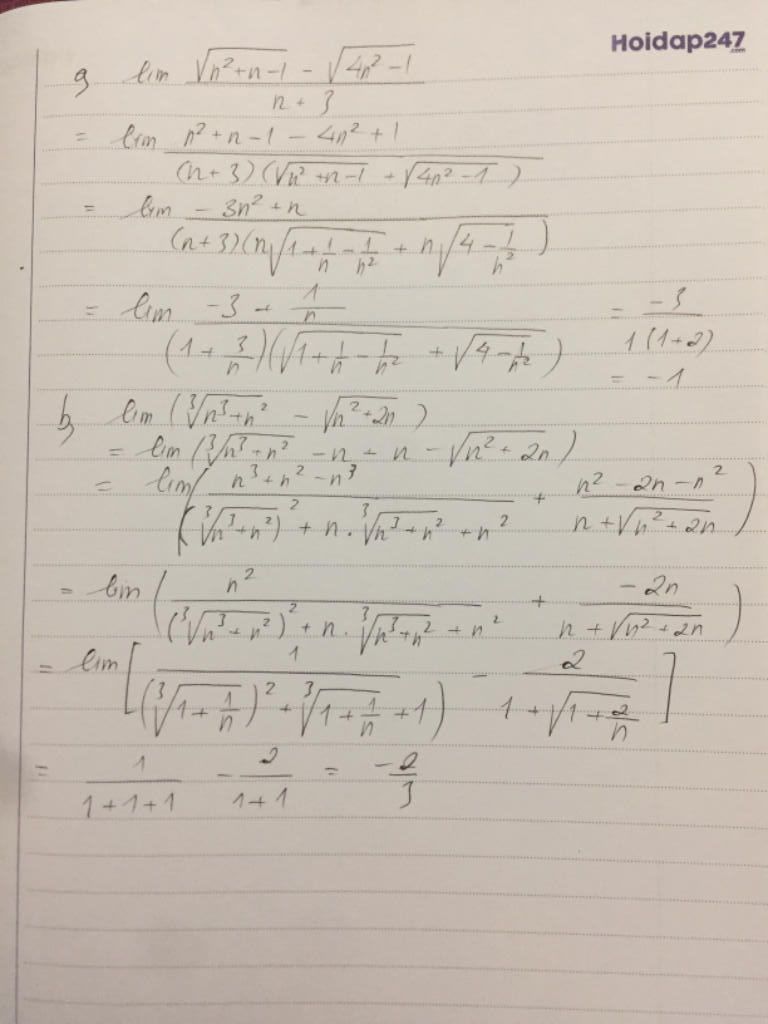 Hoidap247.com
a, lim (√(n²+n-1) - √(4n²-1))/(n+3)
= lim (n²+n-1-4n²+1)/((n+3)(√(n²+n-1) + √(4n²-1)))
= lim (-3n²+n)/((n+3)(n√(1+1/n-1/n²) + n√(4-1/n²)))
= lim (-3+1/n)/((1+3/n)(√(1+1/n-1/n²) + √(4-1/n²))) = -3/(1(1+2))
= -1
b, lim(∛(n³+n²) - √(n²+2n))
= lim(∛(n³+n²) - n + n - √(n²+2n))
= lim((n³+n²-n³)/((∛(n³+n²))² + n.∛(n³+n²) + n²) + (n²-2n-n²)/(n+√(n²+2n)))
= lim(n²/((∛(n³+n²))² + n.∛(n³+n²) + n²) + (-2n)/(n+√(n²+2n)))
= lim[1/((∛(1+1/n))² + ∛(1+1/n) + 1) - 2/(1+√(1+2/n))]
= 1/(1+1+1) - 2/(1+1) = -2/3